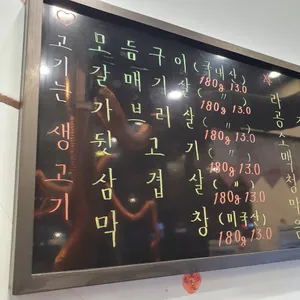 고기는 생고기
모듬구이 (국내산)
180g 13.0
갈매기살 ( 〃 )
180g 13.0
가브리살 ( 〃 )
180g 13.0
뒷고기 ( 〃 )
180g 13.0
삼겹살 ( 〃 )
180g 13.0
막창 (미국산)
180g 13.0